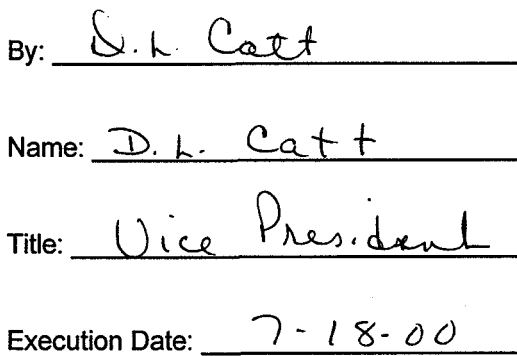 By: D.L. Catt
Name: D. L. Catt
Title: Vice President
Execution Date: 7-18-00